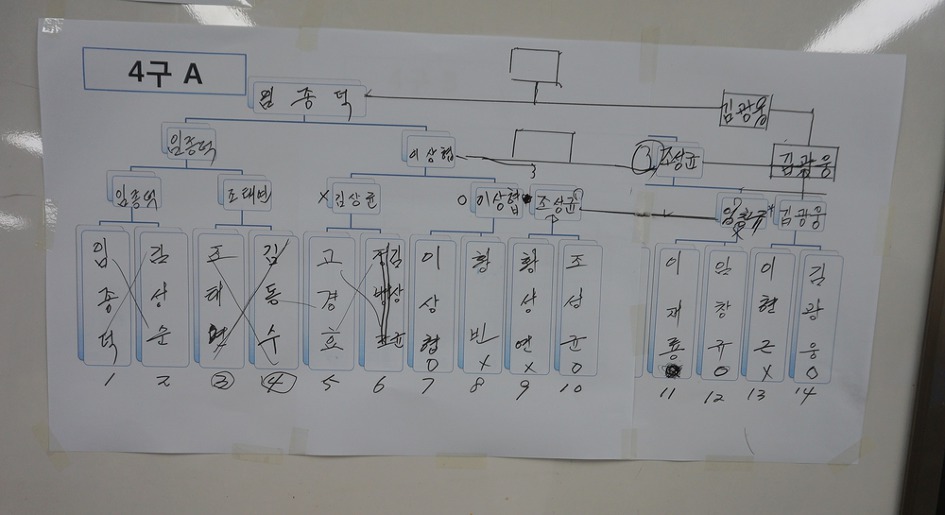 4구 A
임종덕
김광웅
임종덕
이상협
3
3
조성균
김광웅
임종덕
조태연
X 김상균
O 이상협
조성균
임창규
김광웅
임종덕
김성순
조태연
김동수
고경효
김상균
이상협 O
황빈 X
황상연 X
조성균 O
이재룡
임창규 O
이현근 X
김광웅 O
1 2 ③ ④ 5 6 7 8 9 10 11 12 13 14